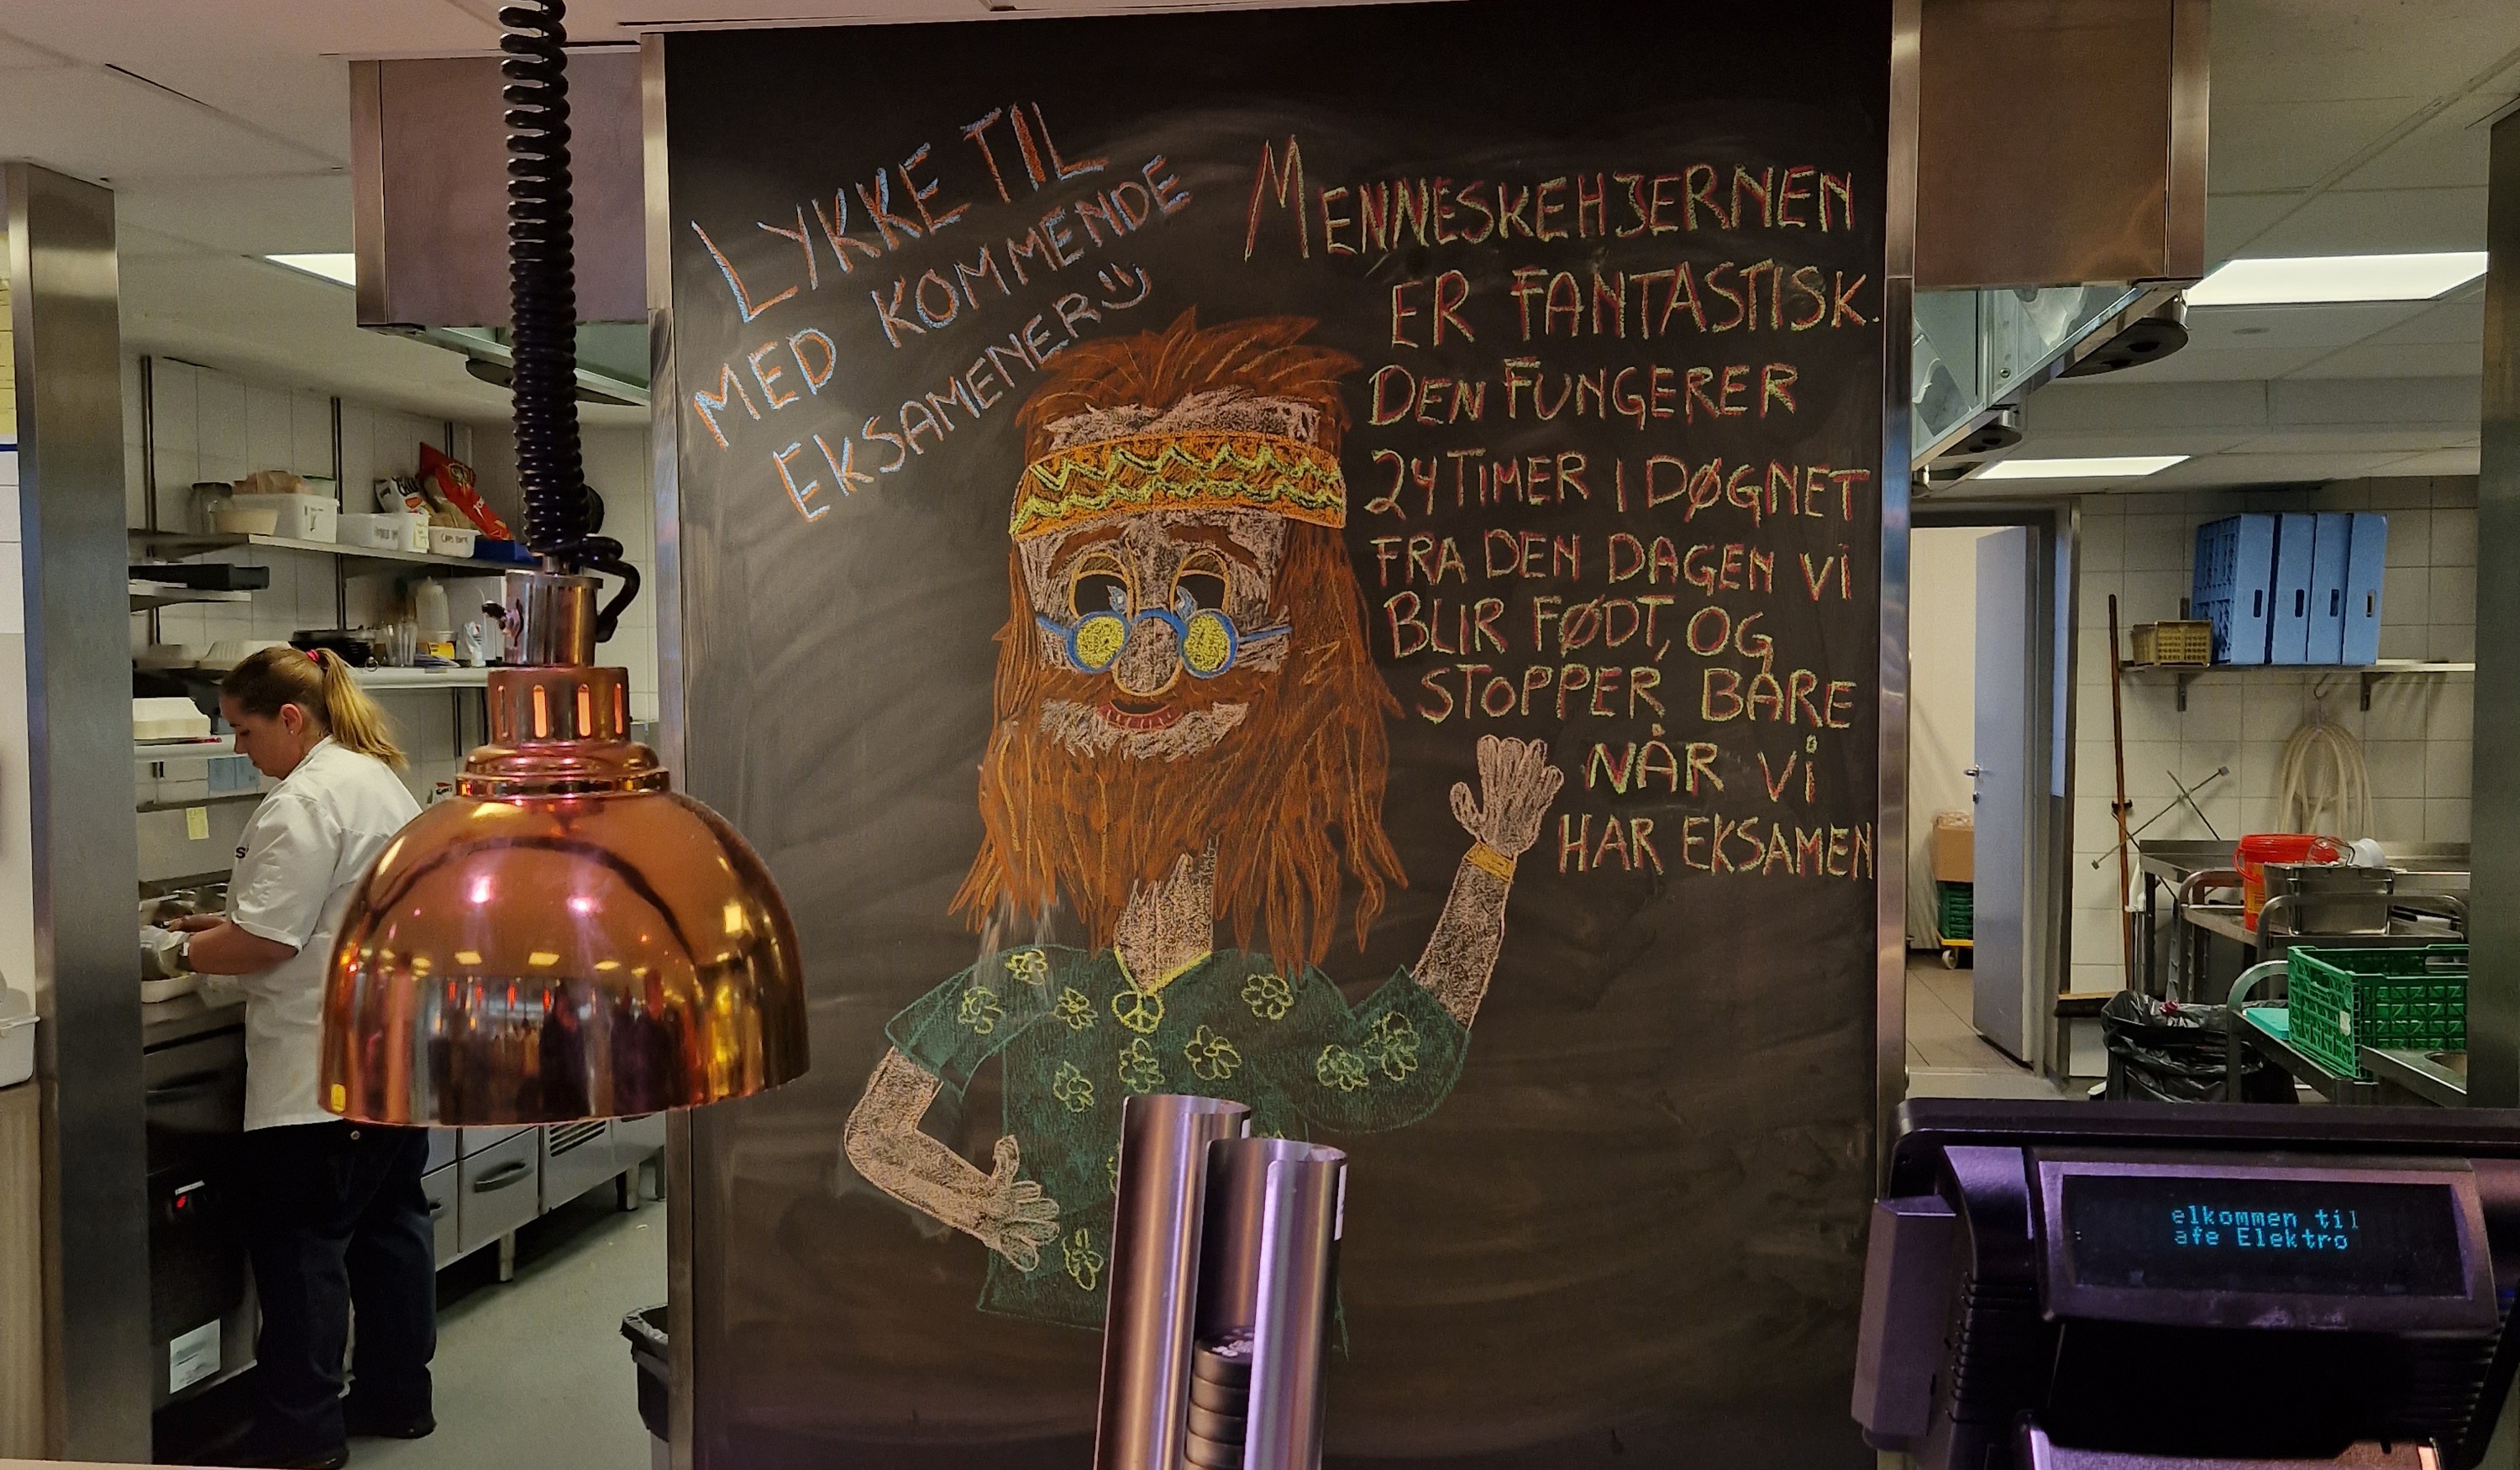 LYKKE TIL
MED KOMMENDE
EKSAMENER
MENNESKEHJERNEN
ER FANTASTISK.
DEN FUNGERER
24 TIMER I DØGNET
FRA DEN DAGEN VI
BLIR FØDT, OG
STOPPER BARE
NÅR VI
HAR EKSAMEN
elkommen til
afe Elektro